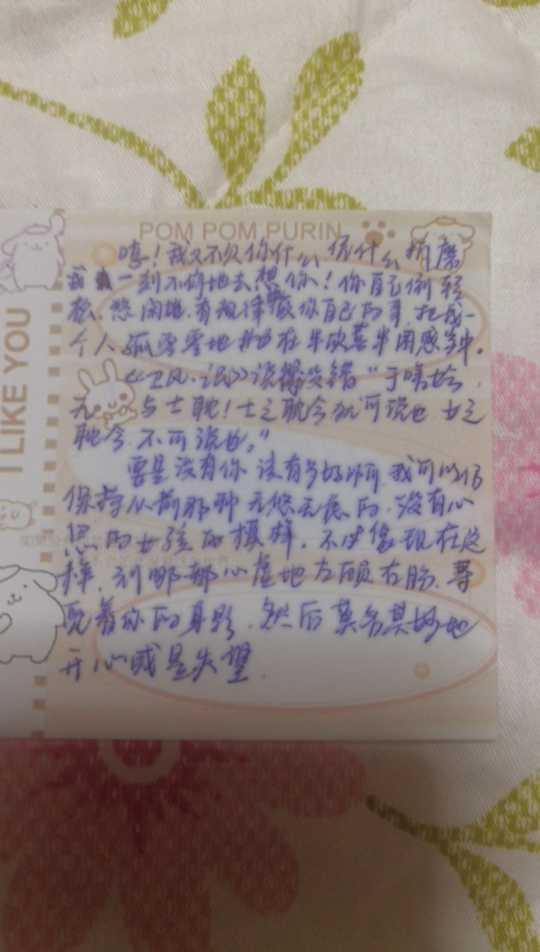 POM POM PURIN
I LIKE YOU
哼！我又不欠你什么凭什么折磨
我一刻不停地去想你！你自己倒轻
松、悠闲地、有规律做你自己的事，把我一
个人孤零零地抛在半欣喜半困惑当中。
《卫风·氓》说得没错“于嗟女兮，
无与士耽！士之耽兮犹可说也 女之
耽兮，不可说也。”
要是没有你 该有多好啊 我可以仍
保持从前那种无忧无虑的，没有心
思的女孩的模样，不必像现在这
样，到哪都心虚地左顾右盼，寻
觅着你的身影，然后莫名其妙地
开心或是失望。